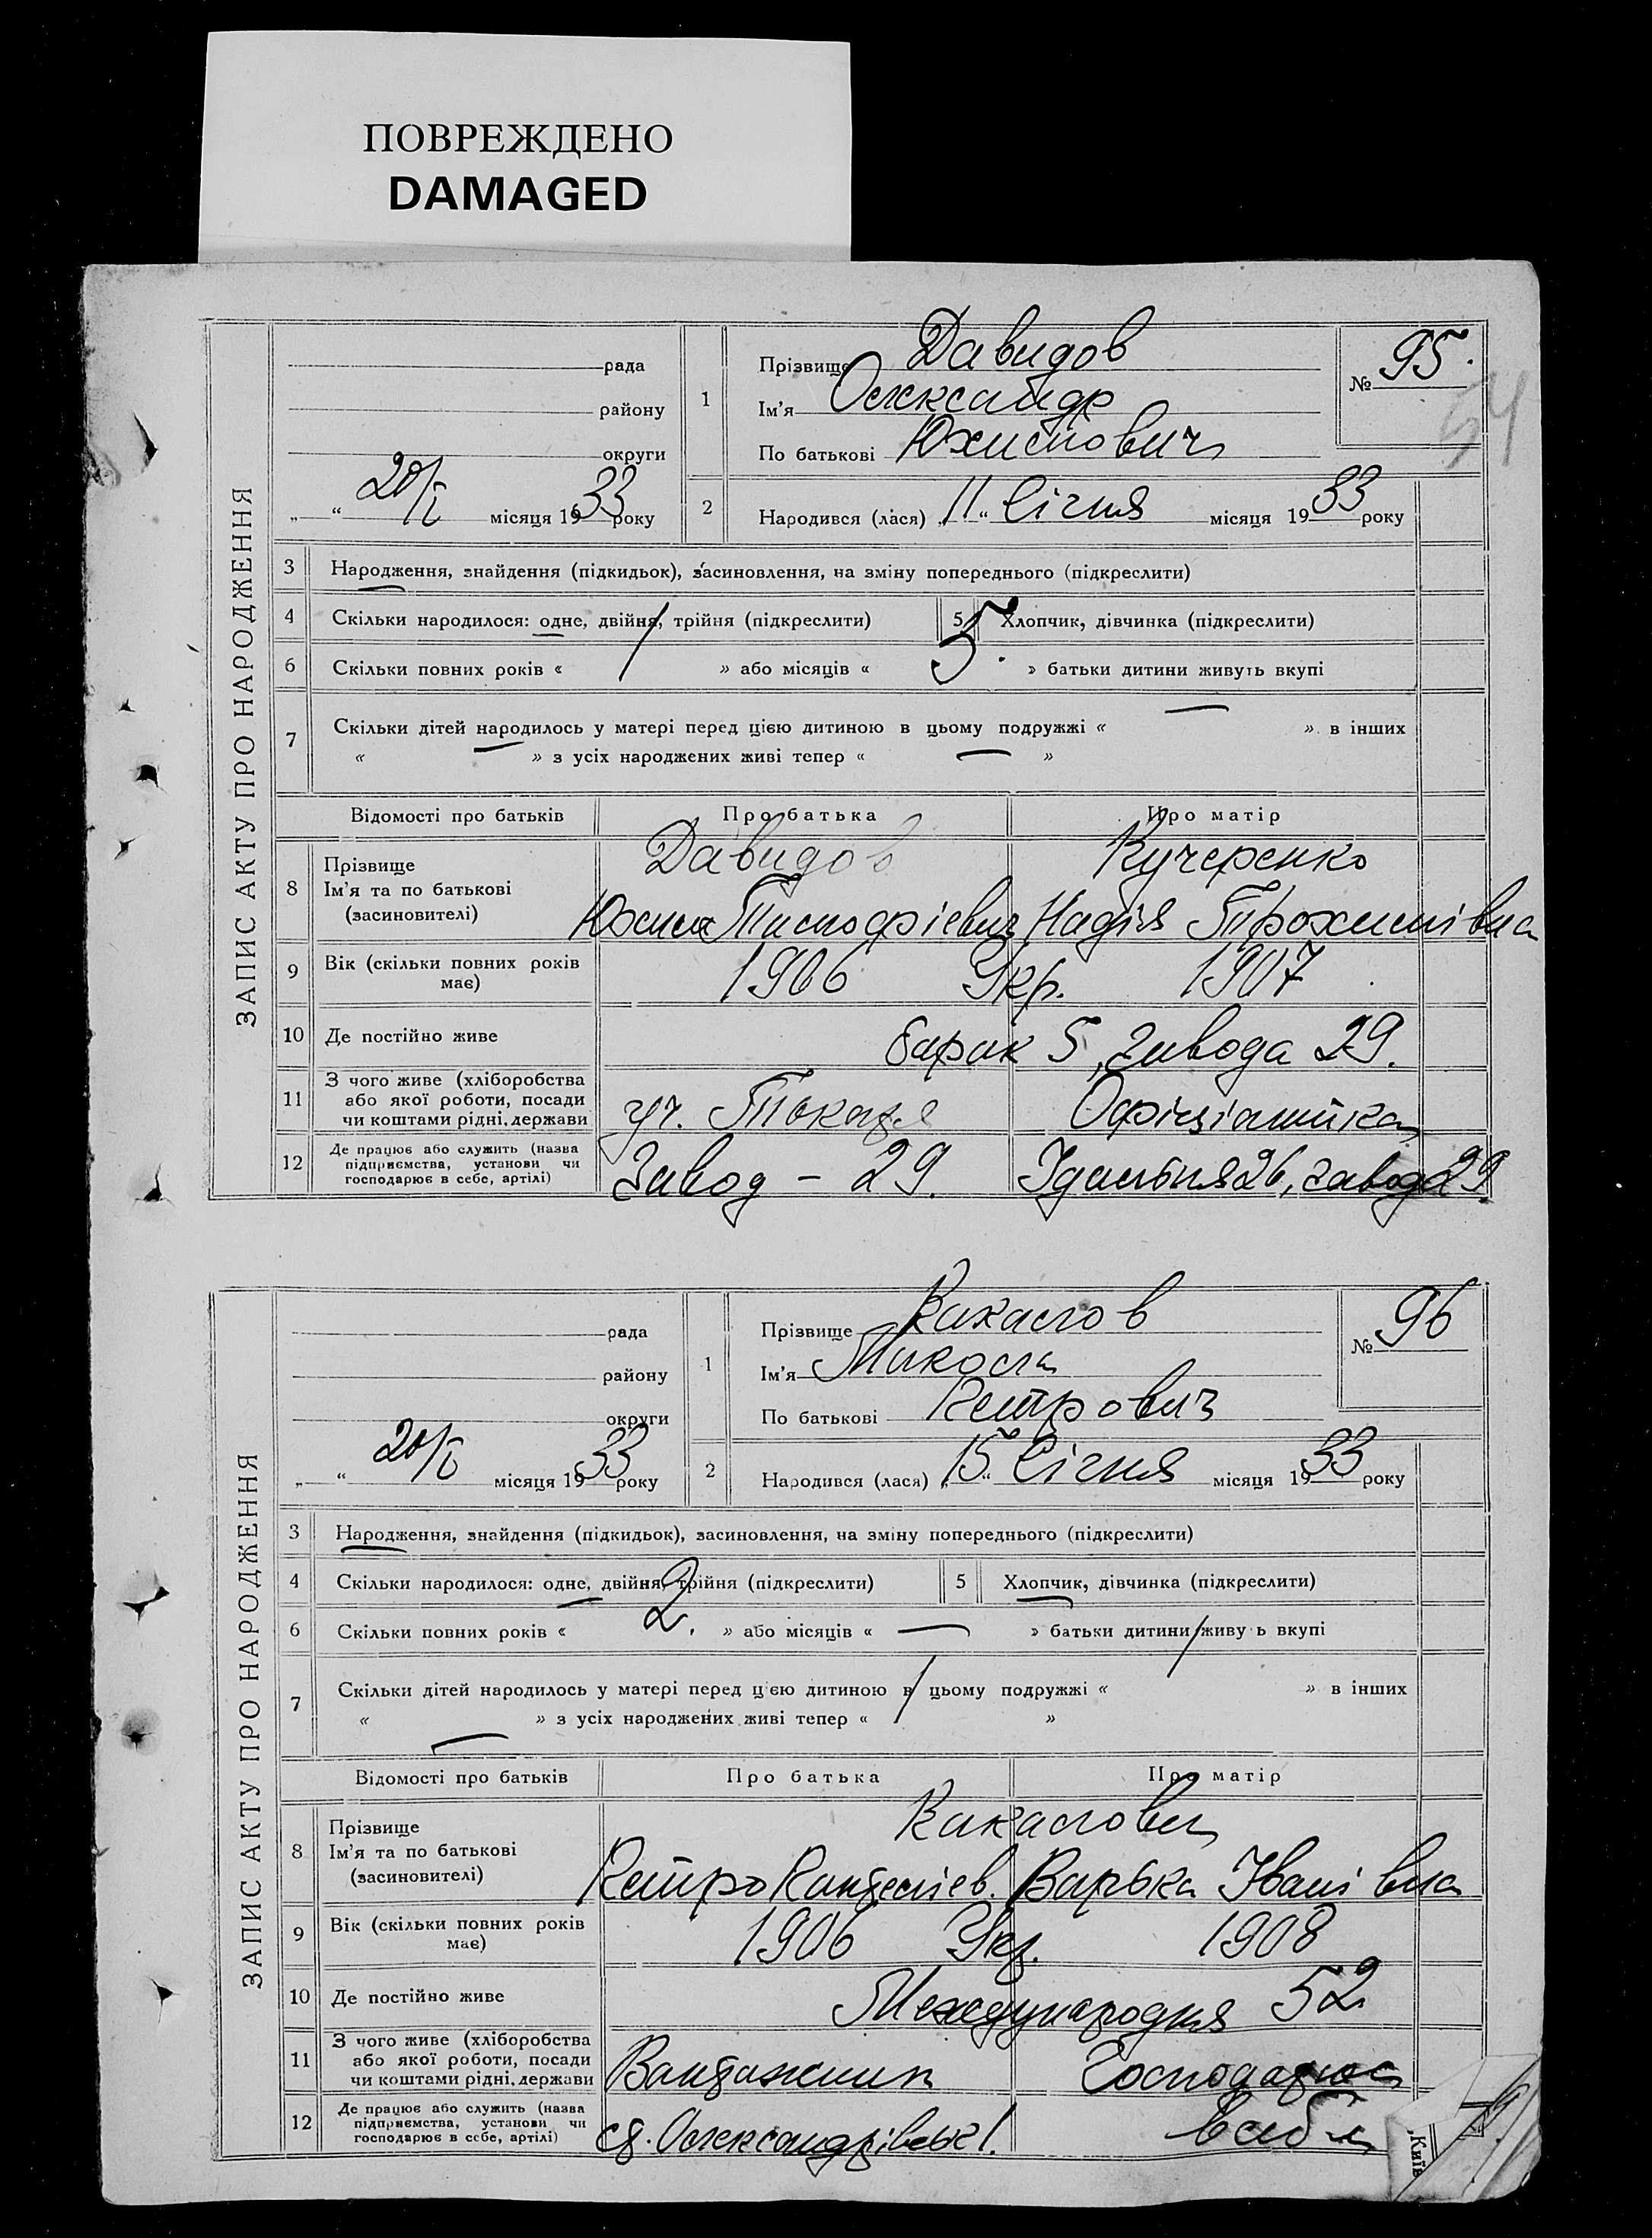 ПОВРЕЖДЕНО
DAMAGED
ЗАПИС АКТУ ПРО НАРОДЖЕННЯ
рада
району
округи
20/I місяця 1933 року
1 Прізвище Давидов
Ім'я Олександр
По батькові Юхимович
№ 95.
54
2 Народився (лася) „11“ Січня місяця 1933 року
3 Народження, знайдення (підкидьок), засиновлення, на зміну попереднього (підкреслити)
4 Скільки народилося: одне, двійня, трійня (підкреслити) 5 Хлопчик, дівчинка (підкреслити)
6 Скільки повних років « / » або місяців « 5. » батьки дитини живуть вкупі
7 Скільки дітей народилось у матері перед цією дитиною в цьому подружжі « — » в інших
« — » з усіх народжених живі тепер « — »
Відомості про батьків Про батька Про матір
8 Прізвище Давидов Кучеренко
Ім'я та по батькові
(засиновителі) Юхим Тимофієвич Надія Трохимівна
9 Вік (скільки повних років має) 1906 Укр. 1907
10 Де постійно живе барак 5, завода 29.
11 З чого живе (хліборобства
або якої роботи, посади
чи коштами рідні, держави уч. Токаря Офіціянтка
12 Де працює або служить (назва
підприємства, установи чи
господарює в себе, артілі) Завод – 29. Їдальня 26, завода 29
ЗАПИС АКТУ ПРО НАРОДЖЕННЯ
рада
району
округи
20/I місяця 1933 року
1 Прізвище Какалов
Ім'я Микола
По батькові Петрович
№ 96
2 Народився (лася) „15“ Січня місяця 1933 року
3 Народження, знайдення (підкидьок), засиновлення, на зміну попереднього (підкреслити)
4 Скільки народилося: одне, двійня, трійня (підкреслити) 5 Хлопчик, дівчинка (підкреслити)
6 Скільки повних років « 2. » або місяців « — » батьки дитини живу ь вкупі
7 Скільки дітей народилось у матері перед цією дитиною в цьому подружжі « / » в інших
« — » з усіх народжених живі тепер « / »
Відомості про батьків Про батька Про матір
8 Прізвище Какалови
Ім'я та по батькові
(засиновителі) Петро Варька Іванівна
9 Вік (скільки повних років має) 1906 Укр. 1908
10 Де постійно живе Международня 52
11 З чого живе (хліборобства
або якої роботи, посади
чи коштами рідні, держави Вантажник Господарює
12 Де працює або служить (назва
підприємства, установи чи
господарює в себе, артілі) ст. Олександрівськ 1. в себе
Київ